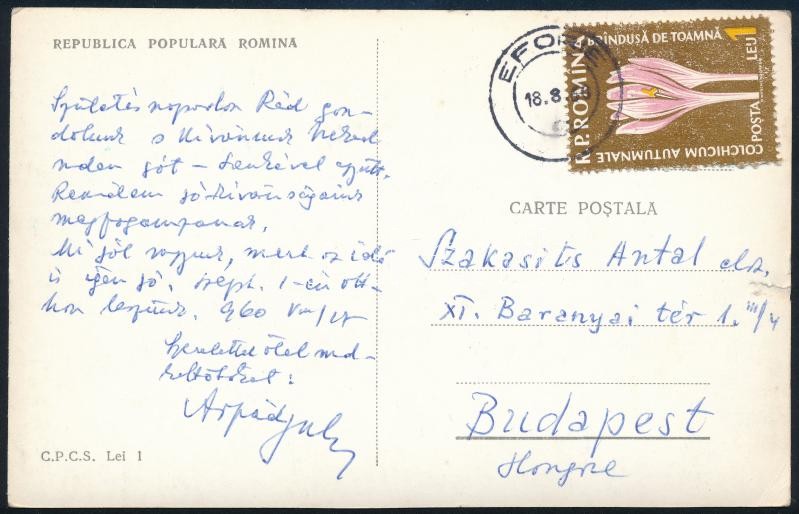 REPUBLICA POPULARĂ ROMINĂ
Születés napodon Rád gon-
dolunk s kivánunk Neked
minden jót –
Remélem jó kivánságaink
megfogannak.
Mi jól vagyunk, mert az idő
is igen jó. Szept. 1-én ott-
hon leszünk. 960 VIII/17
Szeretettel ölel
benneteket:
Árpád
C.P.C.S. Lei 1
EFORIE
18.8.
R.P. ROMINĂ
BRÎNDUȘĂ DE TOAMNĂ
1 LEU
POSTA
COLCHICUM AUTUMNALE
CARTE POȘTALĂ
Szakasits Antal
XI. Baranyai tér 1. III/4
Budapest
Hongrie